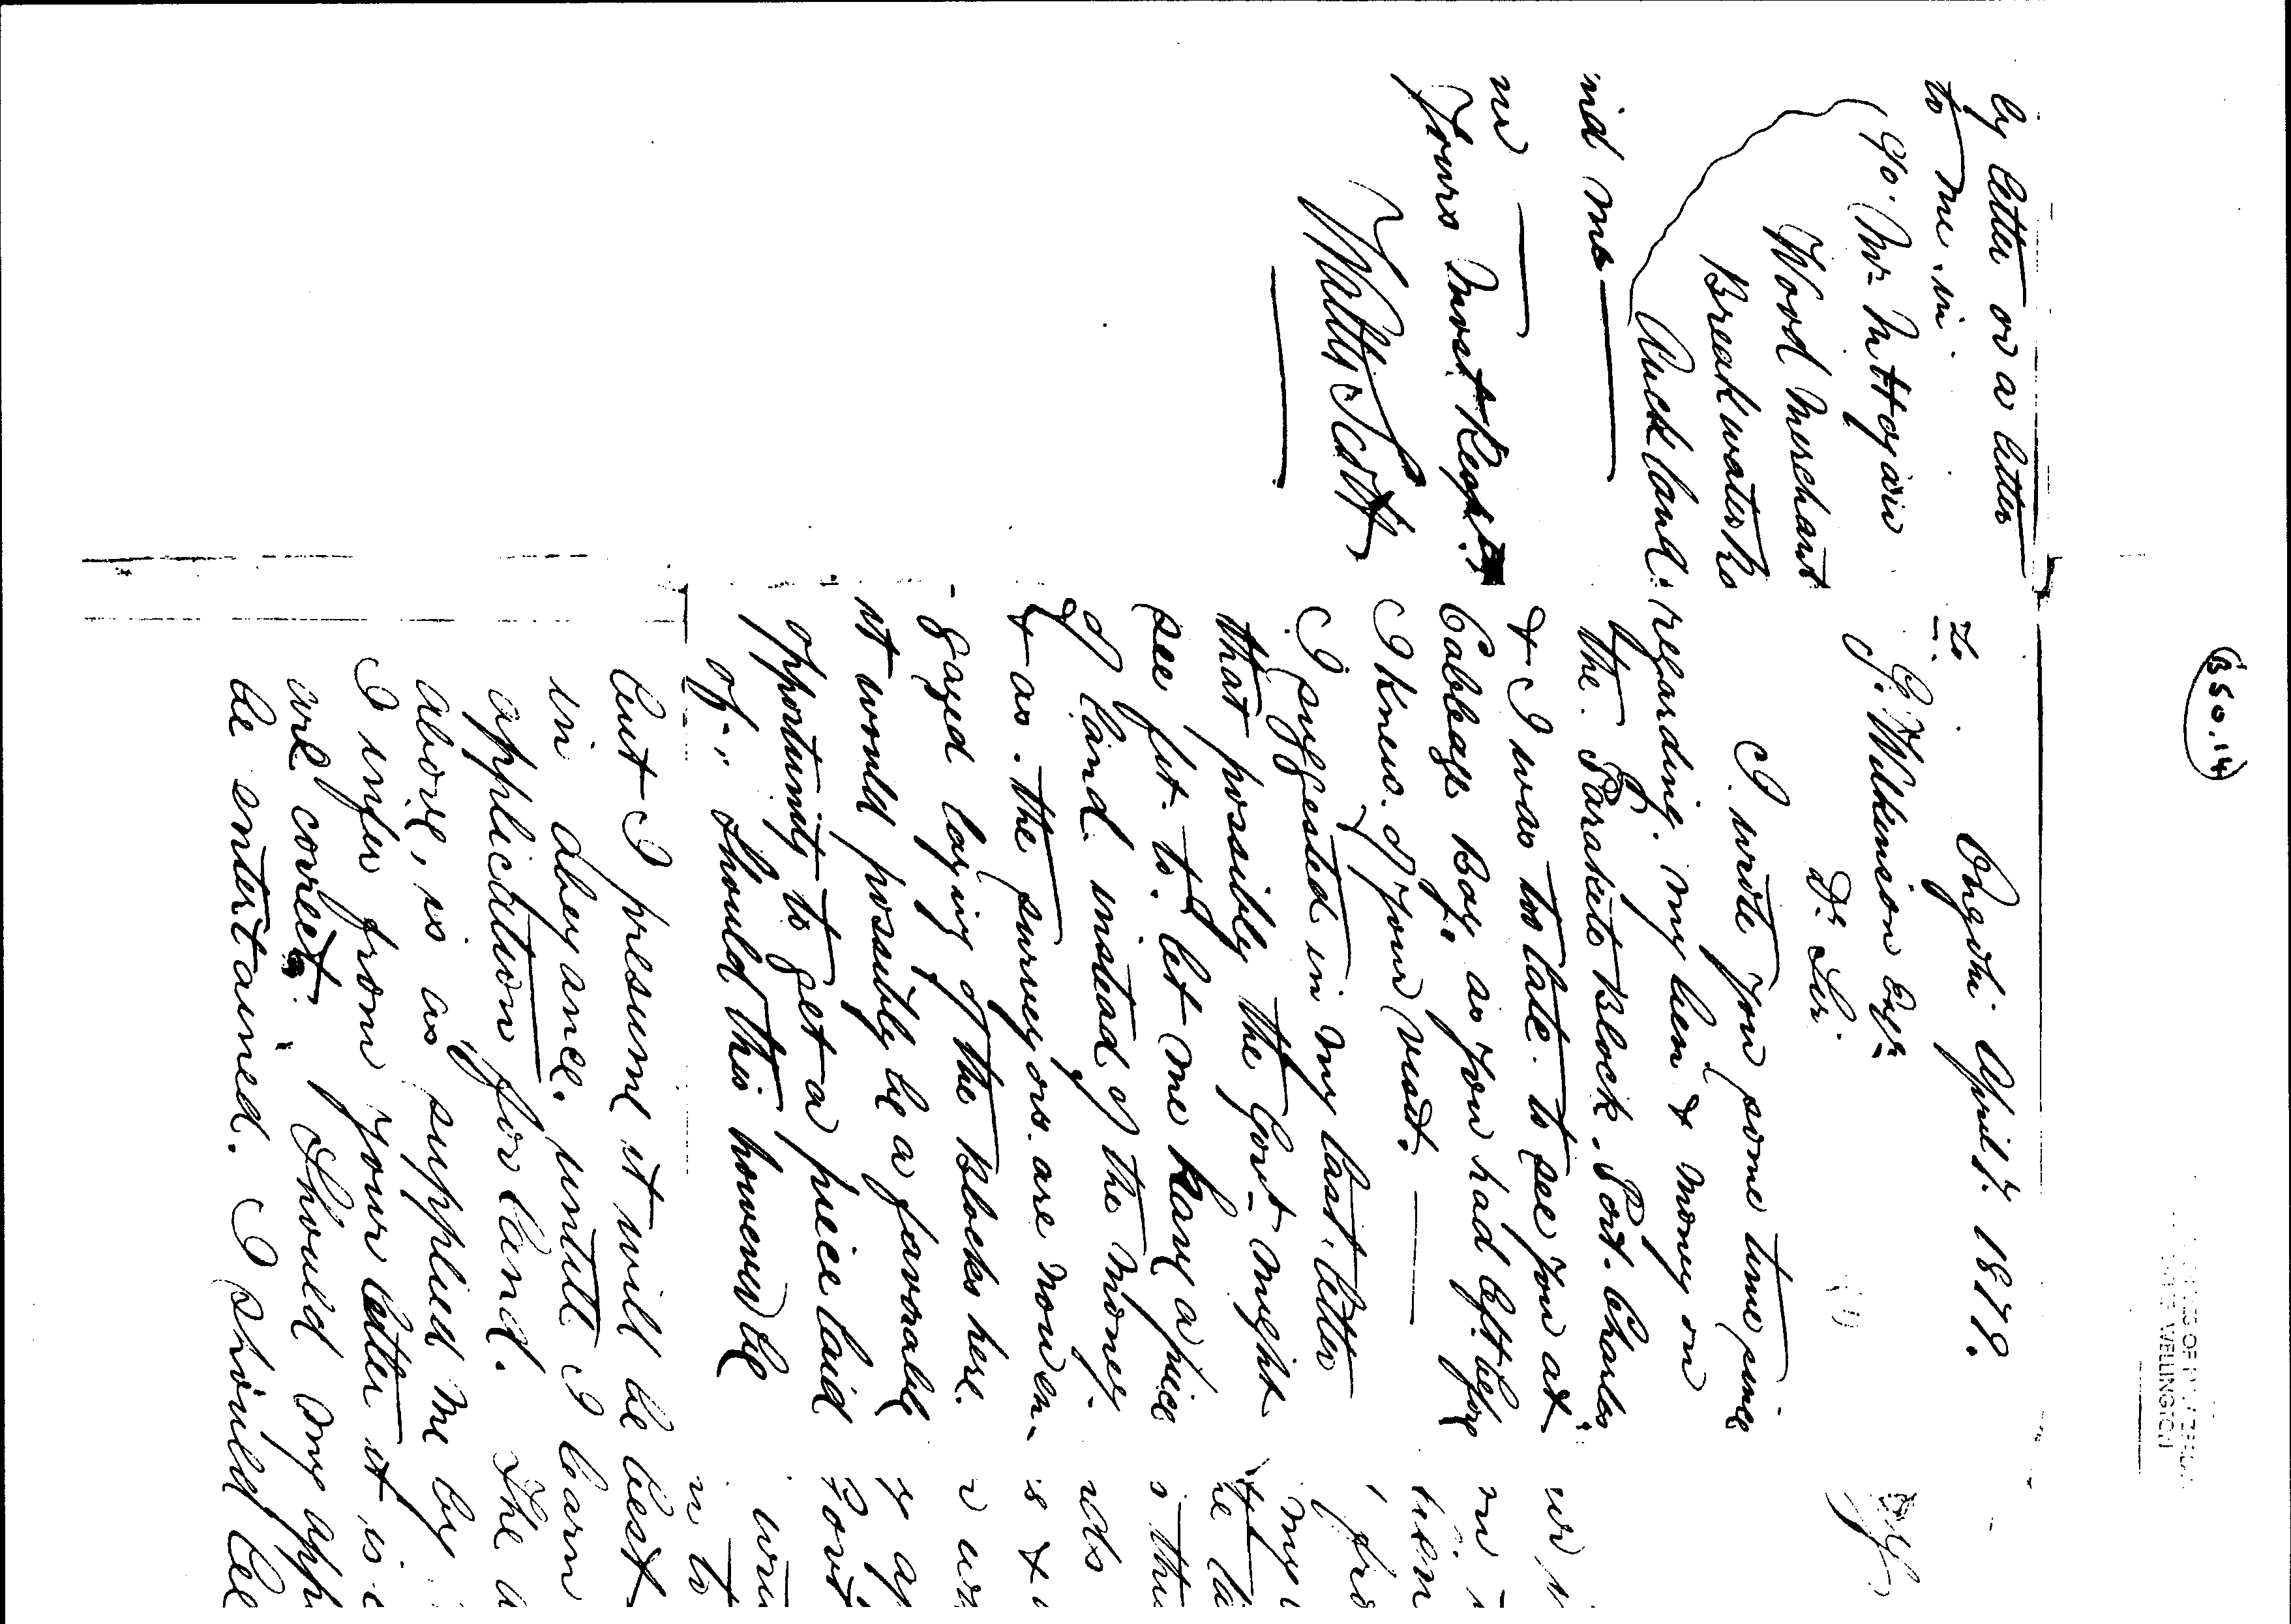 B S O. 14
ARCHIVES OF NEW ZEALAND
WELLINGTON
April 17. 1879.
To
J. Wilkinson Esq.
Dr. Sir.
I wrote you some time since
regarding. my lien & money on
the. Parakete Block. Port. Charles
& I was too late. to see you at
Cabbage Bay. as you had left before
I knew. of your visit.
I suggested in my last. letter
that possibly the Govt. might
see fit. to. let me have a piece
of land. instead of the money.
& as. the surveyors. are now en-
-gaged laying of the Blocks here.
it would possibly be a favorable
opportunity to get a piece laid
off. Should this however be
but I presume it will be best
in abeyance. until I learn
application for land. The a
above, is as supplied me by
I infer from your letter it is
correct. Should my app
be entertained. I should be
by letter or a letter
to me in
c/o. Mr.
Wood Merchant
Breakwater Rd
Auckland.
Yours Most Respt.
Watty Scott